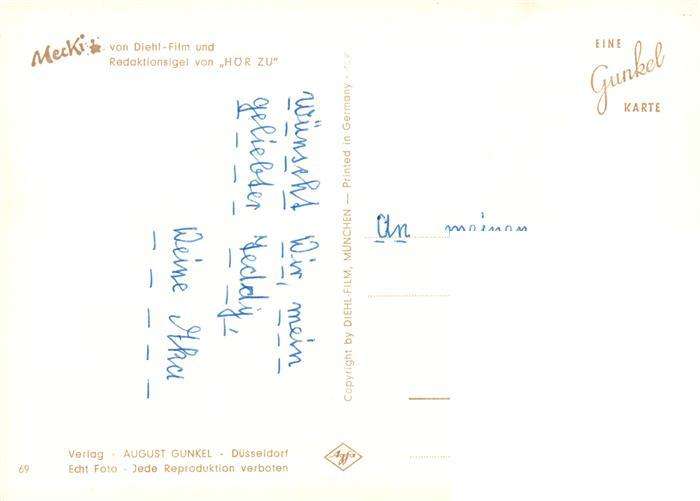 Mecki von Diehl-Film und
Redaktionsigel von „HÖR ZU"
EINE
Gunkel
KARTE
wünscht Dir, mein
geliebter Teddy,
Deine
Copyright by DIEHL-FILM, MÜNCHEN — Printed in Germany
An meinen
Verlag · AUGUST GUNKEL · Düsseldorf
Echt Foto · Jede Reproduktion verboten
69
Agfa